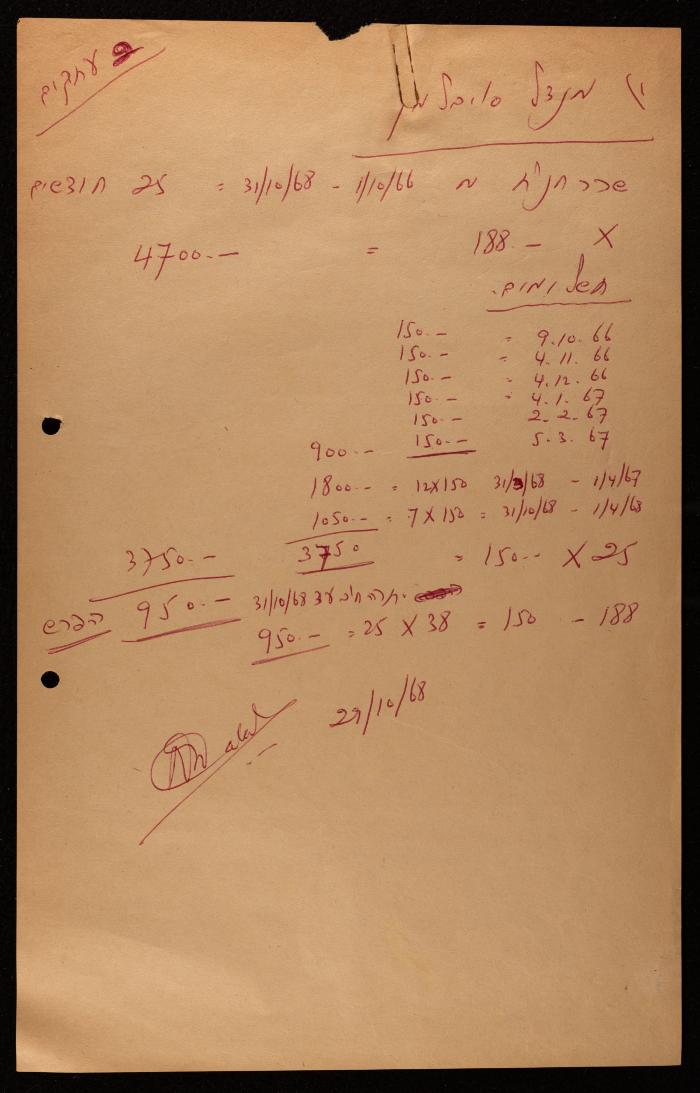 2 עתקים
מנדל
שכר חנ"ח מ 1/10/66 - 31/10/68 = 25 חודשים
X 188.- = 4700.-
תשלומים.
9.10.66 = 150.-
4.11.66 = 150.-
4.12.66 = 150.-
4.1.67 = 150.-
2.2.67 150.-
5.3.67 150.- 900.-
1/4/67 - 31/3/68 12X150 = 1800.-
1/4/68 - 31/10/68 = 7X150 = 1050.-
25 X 150.- = 3750 3750.-
יתרה חיב עד 31/10/68 950.- הפרש
188 - 150 = 38 X 25 = 950.-
29/10/68